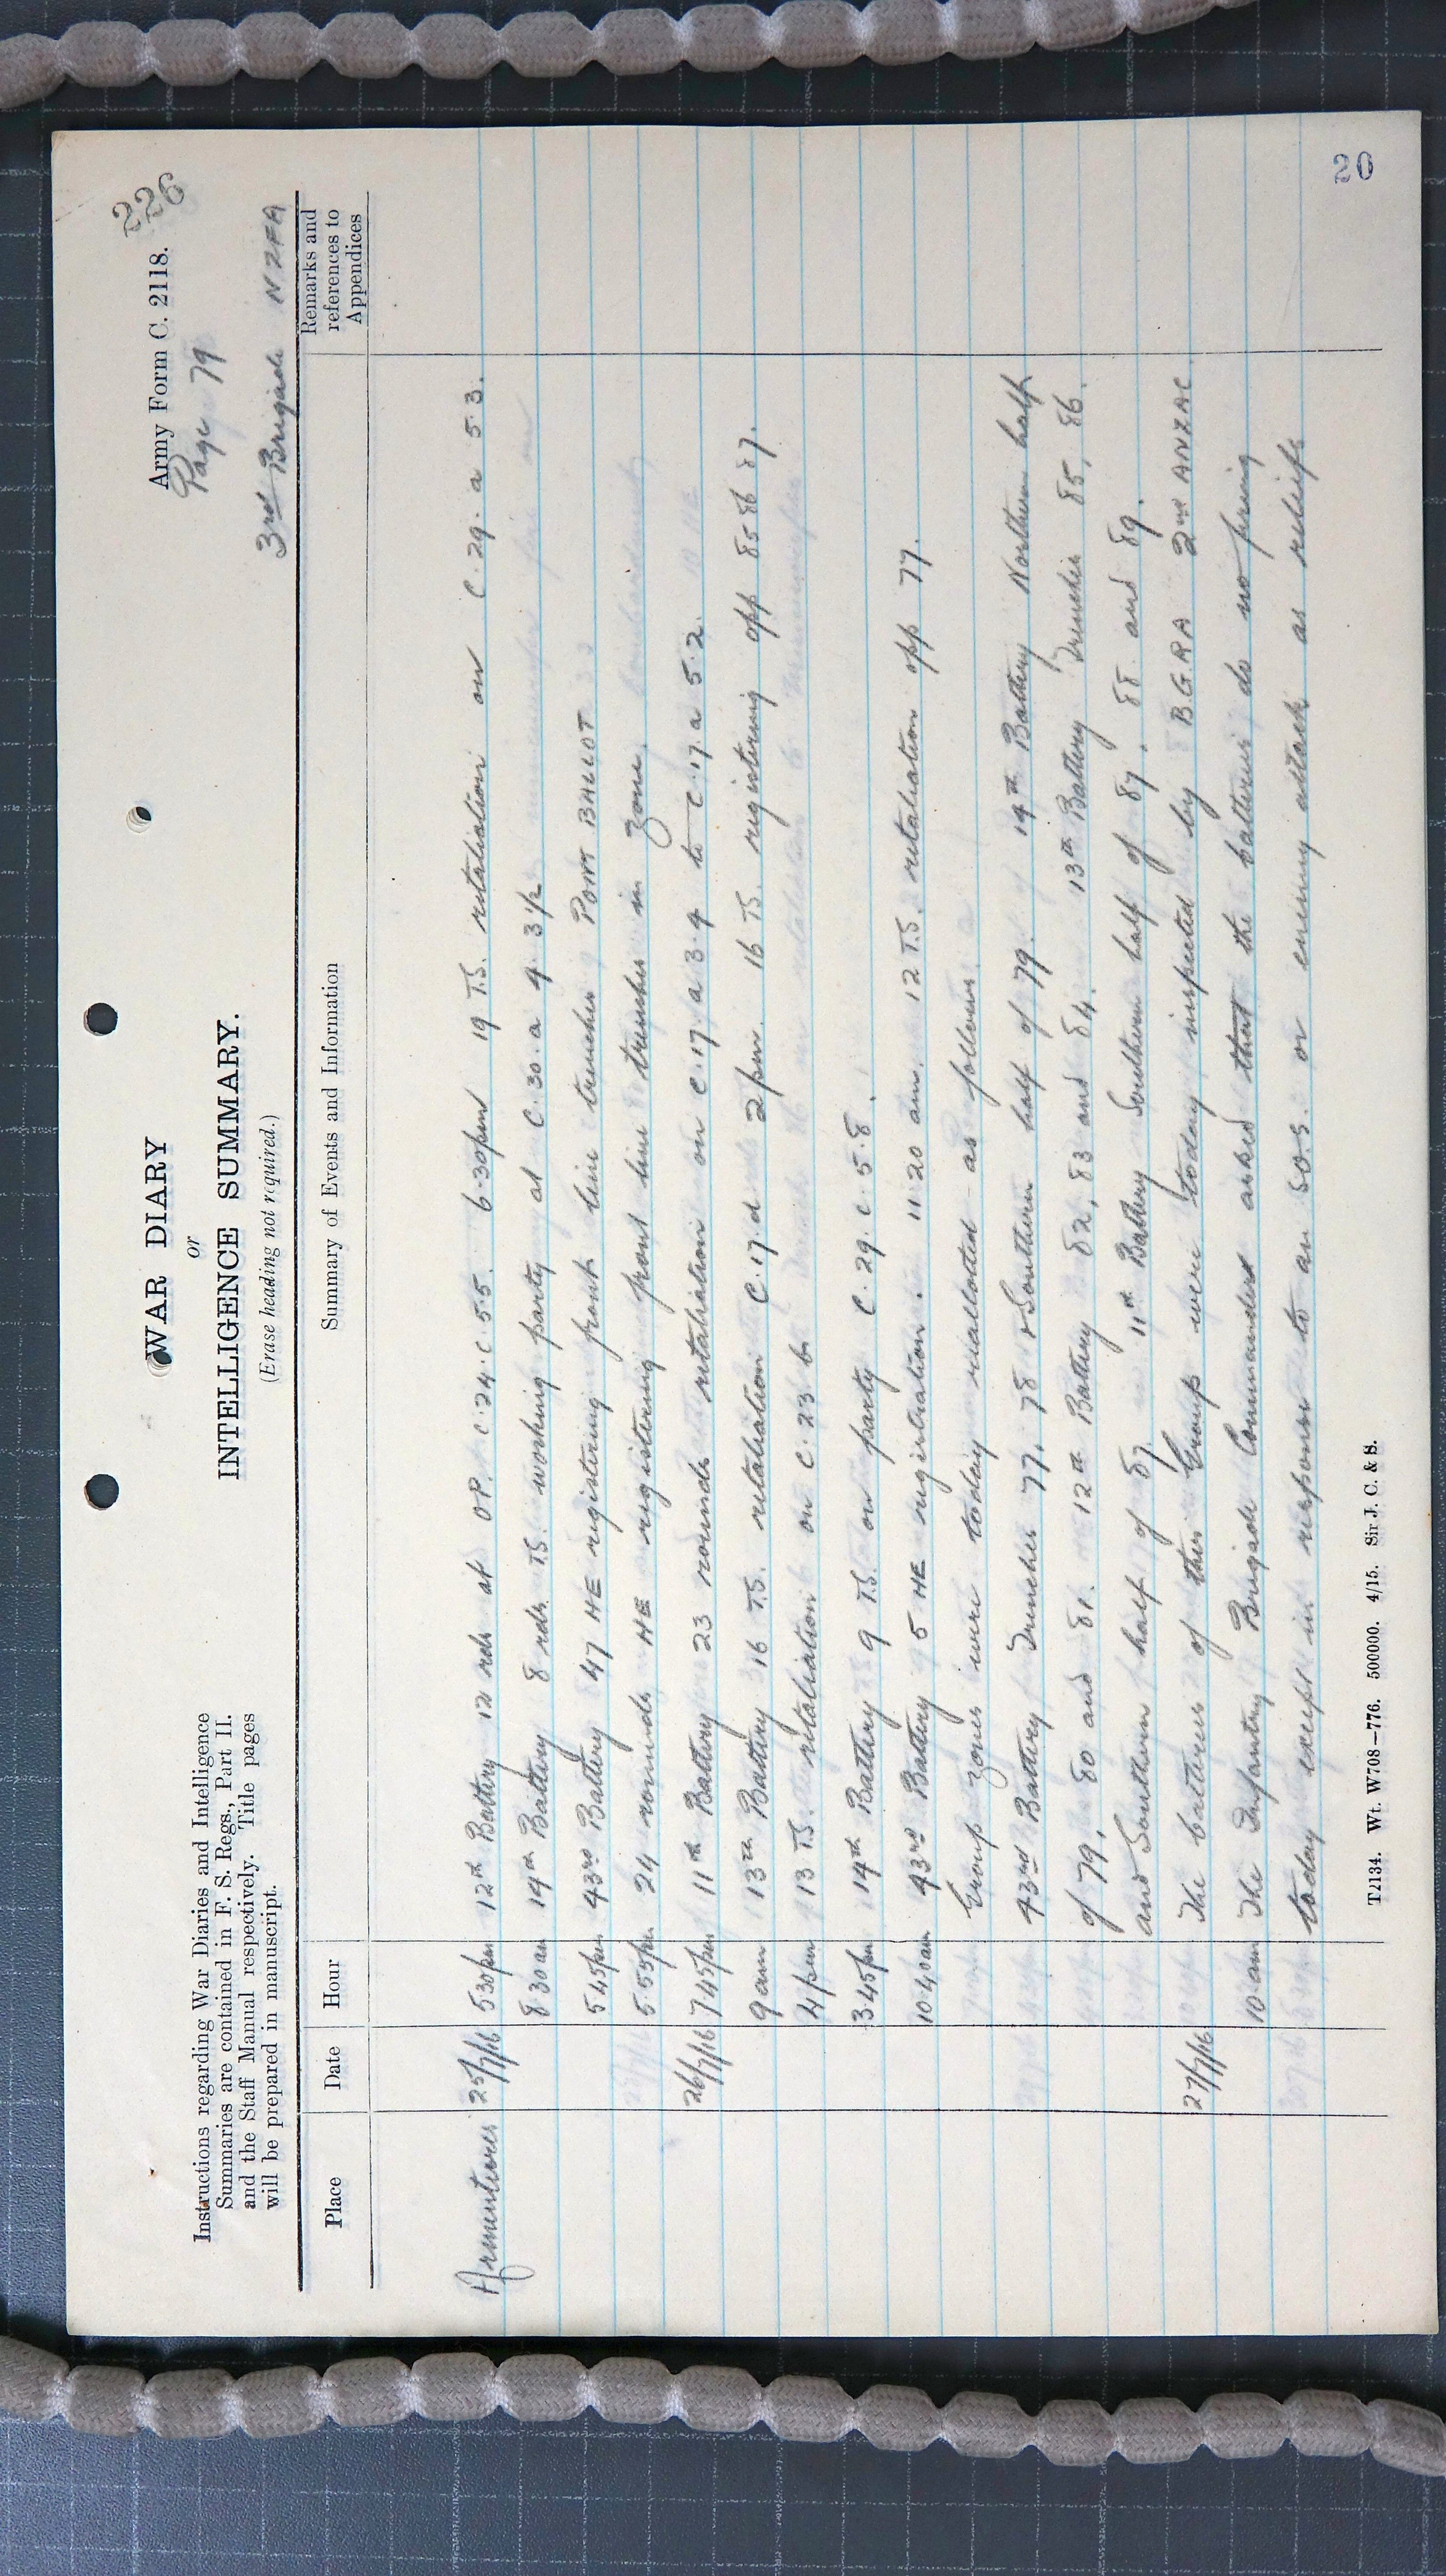 Army Form C. 2118.
226
WAR DIARY
or
INTELLIGENCE SUMMARY.
(Erase heading not required.)
Page 79
3rd Brigade NZFA
Instructions regarding War Diaries and Intelligence
Summaries are contained in F. S. Regs., Part II.
and the Staff Manual respectively. Title pages
will be prepared in manuscript.
Place Date Hour Summary of Events and Information Remarks and references to Appendices
Armentieres 25/7/16 5 30pm 12th Battery 12 rds at O.P. C.24.c.5.5. 6.30pm 19 T.S. retaliation on C.29.a 5.3.
8 30am 14th Battery 8 rds T.S. working party at C.30.a 4.3½
5 45pm 43rd Battery 47 HE registering front line trenches POINT BALLOT
5.55pm 24 rounds HE registering front line trenches in zone.
26/7/16 7 45pm 11th Battery 23 rounds retaliation on C.17.a 3.4 to C.17.a 5.2.
9am 13th Battery 16 T.S. retaliation C.17.d 2pm. 16 T.S. registering opp 85 86 87.
4pm 13 T.S. retaliation on C.23 b.
3 45pm 14th Battery 9 T.S. on party C.29.c.5.8.
10 40am 43rd Battery 5 HE registration. 11.20 am. 12 T.S. retaliation opp 77.
Group zones were today reallotted as follows.
43rd Battery Trenches 77, 78 & Southern half of 79. 14th Battery Northern half
of 79, 80 and 81. 12th Battery 82, 83 and 84. 13th Battery Trenches 85, 86.
and Southern half of 87. 11th Battery Southern half of 87. 88 and 89.
27/7/16 The batteries of this Group were today inspected by B.G.R.A 2nd ANZAC.
10 am The Infantry Brigade Commander asked that the batteries do no firing
today except in response to an S.O.S. or enemy attack as reliefs
T2134. Wt. W708—776. 500000. 4/15. Sir J. C. & S.
20